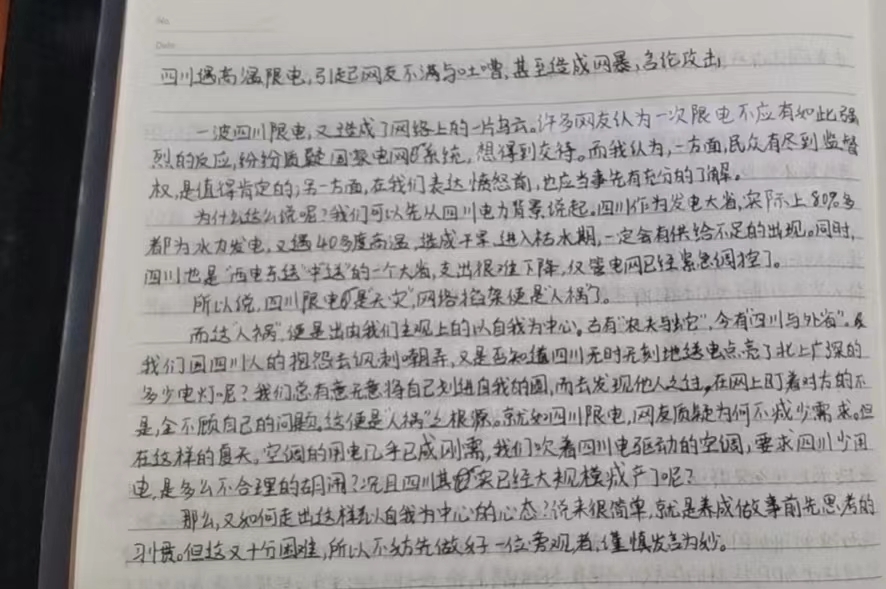 No.
Date
四川遇高温限电,引起网友不满与吐嘈,甚至造成网暴,名伦攻击
一波四川限电,又造成了网络上的一片乌云。许多网友认为一次限电不应有如此强
烈的反应,纷纷质疑国家电网的系统,想得到交待。而我认为,一方面,民众有尽到监督
权,是值得肯定的;另一方面,在我们表达愤怒前,也应当事先有充分的了解。
为什么这么说呢?我们可以先从四川电力背景说起。四川作为发电大省,实际上80%多
都为水力发电,又遇40多度高温,造成干旱,进入枯水期,一定会有供给不足的出现。同时,
四川也是“西电东送”中“送”的一个大省,支出很难下降,仅管电网已经紧急调控了。
所以说,四川限电是“天灾”,网络掐架便是“人祸”了。
而这“人祸”,便是出由我们主观上的以自我为中心。古有“农夫与蛇”,今有“四川与外省”。
我们因四川人的抱怨去讽刺嘲弄,又是否知道四川无时无刻地送电点亮了北上广深的
多少电灯呢?我们总有意无意将自己划进自我的圈,而去发现他人之过,在网上盯着对方的不
是,全不顾自己的问题。这便是“人祸”之根源。就如四川限电,网友质疑为何不减少需求。但
在这样的夏天,空调的用电几乎已成刚需,我们吹着四川电驱动的空调,要求四川少用
电,是多么不合理的胡闹?况且四川其实已经大规模减产了呢?
那么,又如何走出这样以自我为中心的心态?说来很简单,就是养成做事前先思考的
习惯。但这又十分困难,所以不妨先做好一位旁观者,谨慎发言为妙。